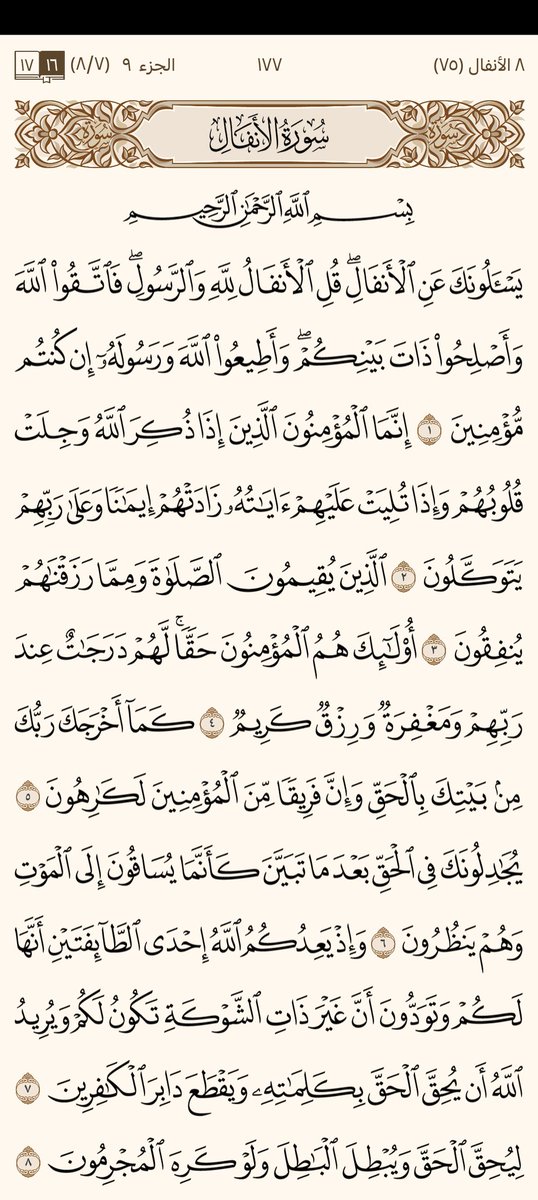 ٨ الأنفال (٧٥) ١٧٧ الجزء ٩ (٨/٧) ١٦ ١٧
سورة سُورَةُ الأَنفَالِ سورة
بِسْمِ ٱللَّهِ ٱلرَّحْمَٰنِ ٱلرَّحِيمِ
يَسْـَٔلُونَكَ عَنِ ٱلْأَنفَالِۖ قُلِ ٱلْأَنفَالُ لِلَّهِ وَٱلرَّسُولِۖ فَٱتَّقُوا۟ ٱللَّهَ
وَأَصْلِحُوا۟ ذَاتَ بَيْنِكُمْۖ وَأَطِيعُوا۟ ٱللَّهَ وَرَسُولَهُۥٓ إِن كُنتُم
مُّؤْمِنِينَ ١ إِنَّمَا ٱلْمُؤْمِنُونَ ٱلَّذِينَ إِذَا ذُكِرَ ٱللَّهُ وَجِلَتْ
قُلُوبُهُمْ وَإِذَا تُلِيَتْ عَلَيْهِمْ ءَايَٰتُهُۥ زَادَتْهُمْ إِيمَٰنًا وَعَلَىٰ رَبِّهِمْ
يَتَوَكَّلُونَ ٢ ٱلَّذِينَ يُقِيمُونَ ٱلصَّلَوٰةَ وَمِمَّا رَزَقْنَٰهُمْ
يُنفِقُونَ ٣ أُو۟لَٰٓئِكَ هُمُ ٱلْمُؤْمِنُونَ حَقًّاۚ لَّهُمْ دَرَجَٰتٌ عِندَ
رَبِّهِمْ وَمَغْفِرَةٌ وَرِزْقٌ كَرِيمٌ ٤ كَمَآ أَخْرَجَكَ رَبُّكَ
مِنۢ بَيْتِكَ بِٱلْحَقِّ وَإِنَّ فَرِيقًا مِّنَ ٱلْمُؤْمِنِينَ لَكَٰرِهُونَ ٥
يُجَٰدِلُونَكَ فِى ٱلْحَقِّ بَعْدَ مَا تَبَيَّنَ كَأَنَّمَا يُسَاقُونَ إِلَى ٱلْمَوْتِ
وَهُمْ يَنظُرُونَ ٦ وَإِذْ يَعِدُكُمُ ٱللَّهُ إِحْدَى ٱلطَّآئِفَتَيْنِ أَنَّهَا
لَكُمْ وَتَوَدُّونَ أَنَّ غَيْرَ ذَاتِ ٱلشَّوْكَةِ تَكُونُ لَكُمْ وَيُرِيدُ
ٱللَّهُ أَن يُحِقَّ ٱلْحَقَّ بِكَلِمَٰتِهِۦ وَيَقْطَعَ دَابِرَ ٱلْكَٰفِرِينَ ٧
لِيُحِقَّ ٱلْحَقَّ وَيُبْطِلَ ٱلْبَٰطِلَ وَلَوْ كَرِهَ ٱلْمُجْرِمُونَ ٨